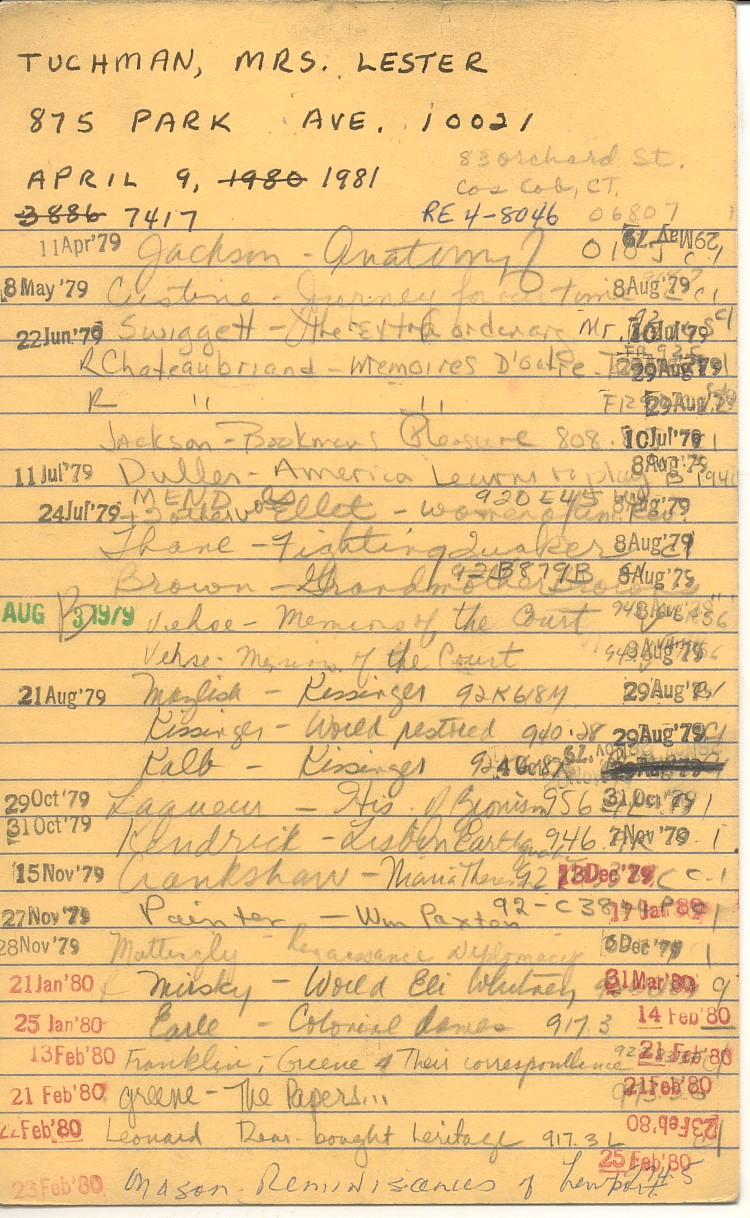 TUCHMAN, MRS. LESTER
875 PARK AVE. 10021
83 Orchard St.
APRIL 9, 1980 1981
Cos Cob, CT.
3886 7417 RE 4-8046 06807
11 Apr '79 Jackson - Anatomy
8 May '79 Custine - Journey for our time 8 Aug '79
22 Jun '79 Swiggett - The Extraordinary Mr. 10 Jul '79
R Chateaubriand - Memoires D'outre 29 Aug '79
R " " 29 Aug '79
Jackson - Bookman's Pleasure 808. 10 Jul '79
11 Jul '79 Dulles - America Learns to play 8 Aug '79
24 Jul '79 Ellet - Women of 920 E45 8 Aug '79
Thane - Fighting Quaker 8 Aug '79
Brown - Grandmother Brown 92 B879B 8 Aug '79
AUG 1979 Vehse - Memoirs of the Court
Vehse - Memoirs of the Court 8 Aug '79
21 Aug '79 Mazlish - Kissinger 92 K618M 29 Aug '79
Kissinger - World restored 940.28 29 Aug '79
Kalb - Kissinger
29 Oct '79 Laqueur - His. of Zionism 956 31 Oct '79
31 Oct '79 Kendrick - Lisbon Earthquake 946. 7 Nov '79
15 Nov '79 Crankshaw - Maria Theresa 92 13 Dec '79
27 Nov '79 Painter - Wm Paxton 17 Jan '80
28 Nov '79 Mattingly - Renaissance Diplomacy 6 Dec '79
21 Jan '80 Mirsky - World Eli Whitney 31 Mar '80
25 Jan '80 Earle - Colonial dames 917.3 14 Feb '80
13 Feb '80 Franklin, - Greene & Their correspondence 21 Feb '80
21 Feb '80 Greene - The Papers... 21 Feb '80
Feb '80 Leonard Dear-bought heritage 917.3 L 23 Feb '80
25 Feb '80
23 Feb '80 Mason Reminiscences of Newport